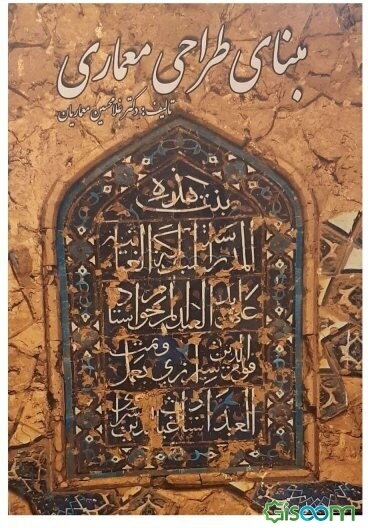 مبنای طراحی معماری
تألیف: دکتر غلامحسین معماریان
بنیت هذه
المدرسة المبارکة الغیاثیة
العبد المرحوم استاد
قوام الدین شیرازی وتمت بعمل
العبد استاد غیاث الدین شیرازی
Gisoom